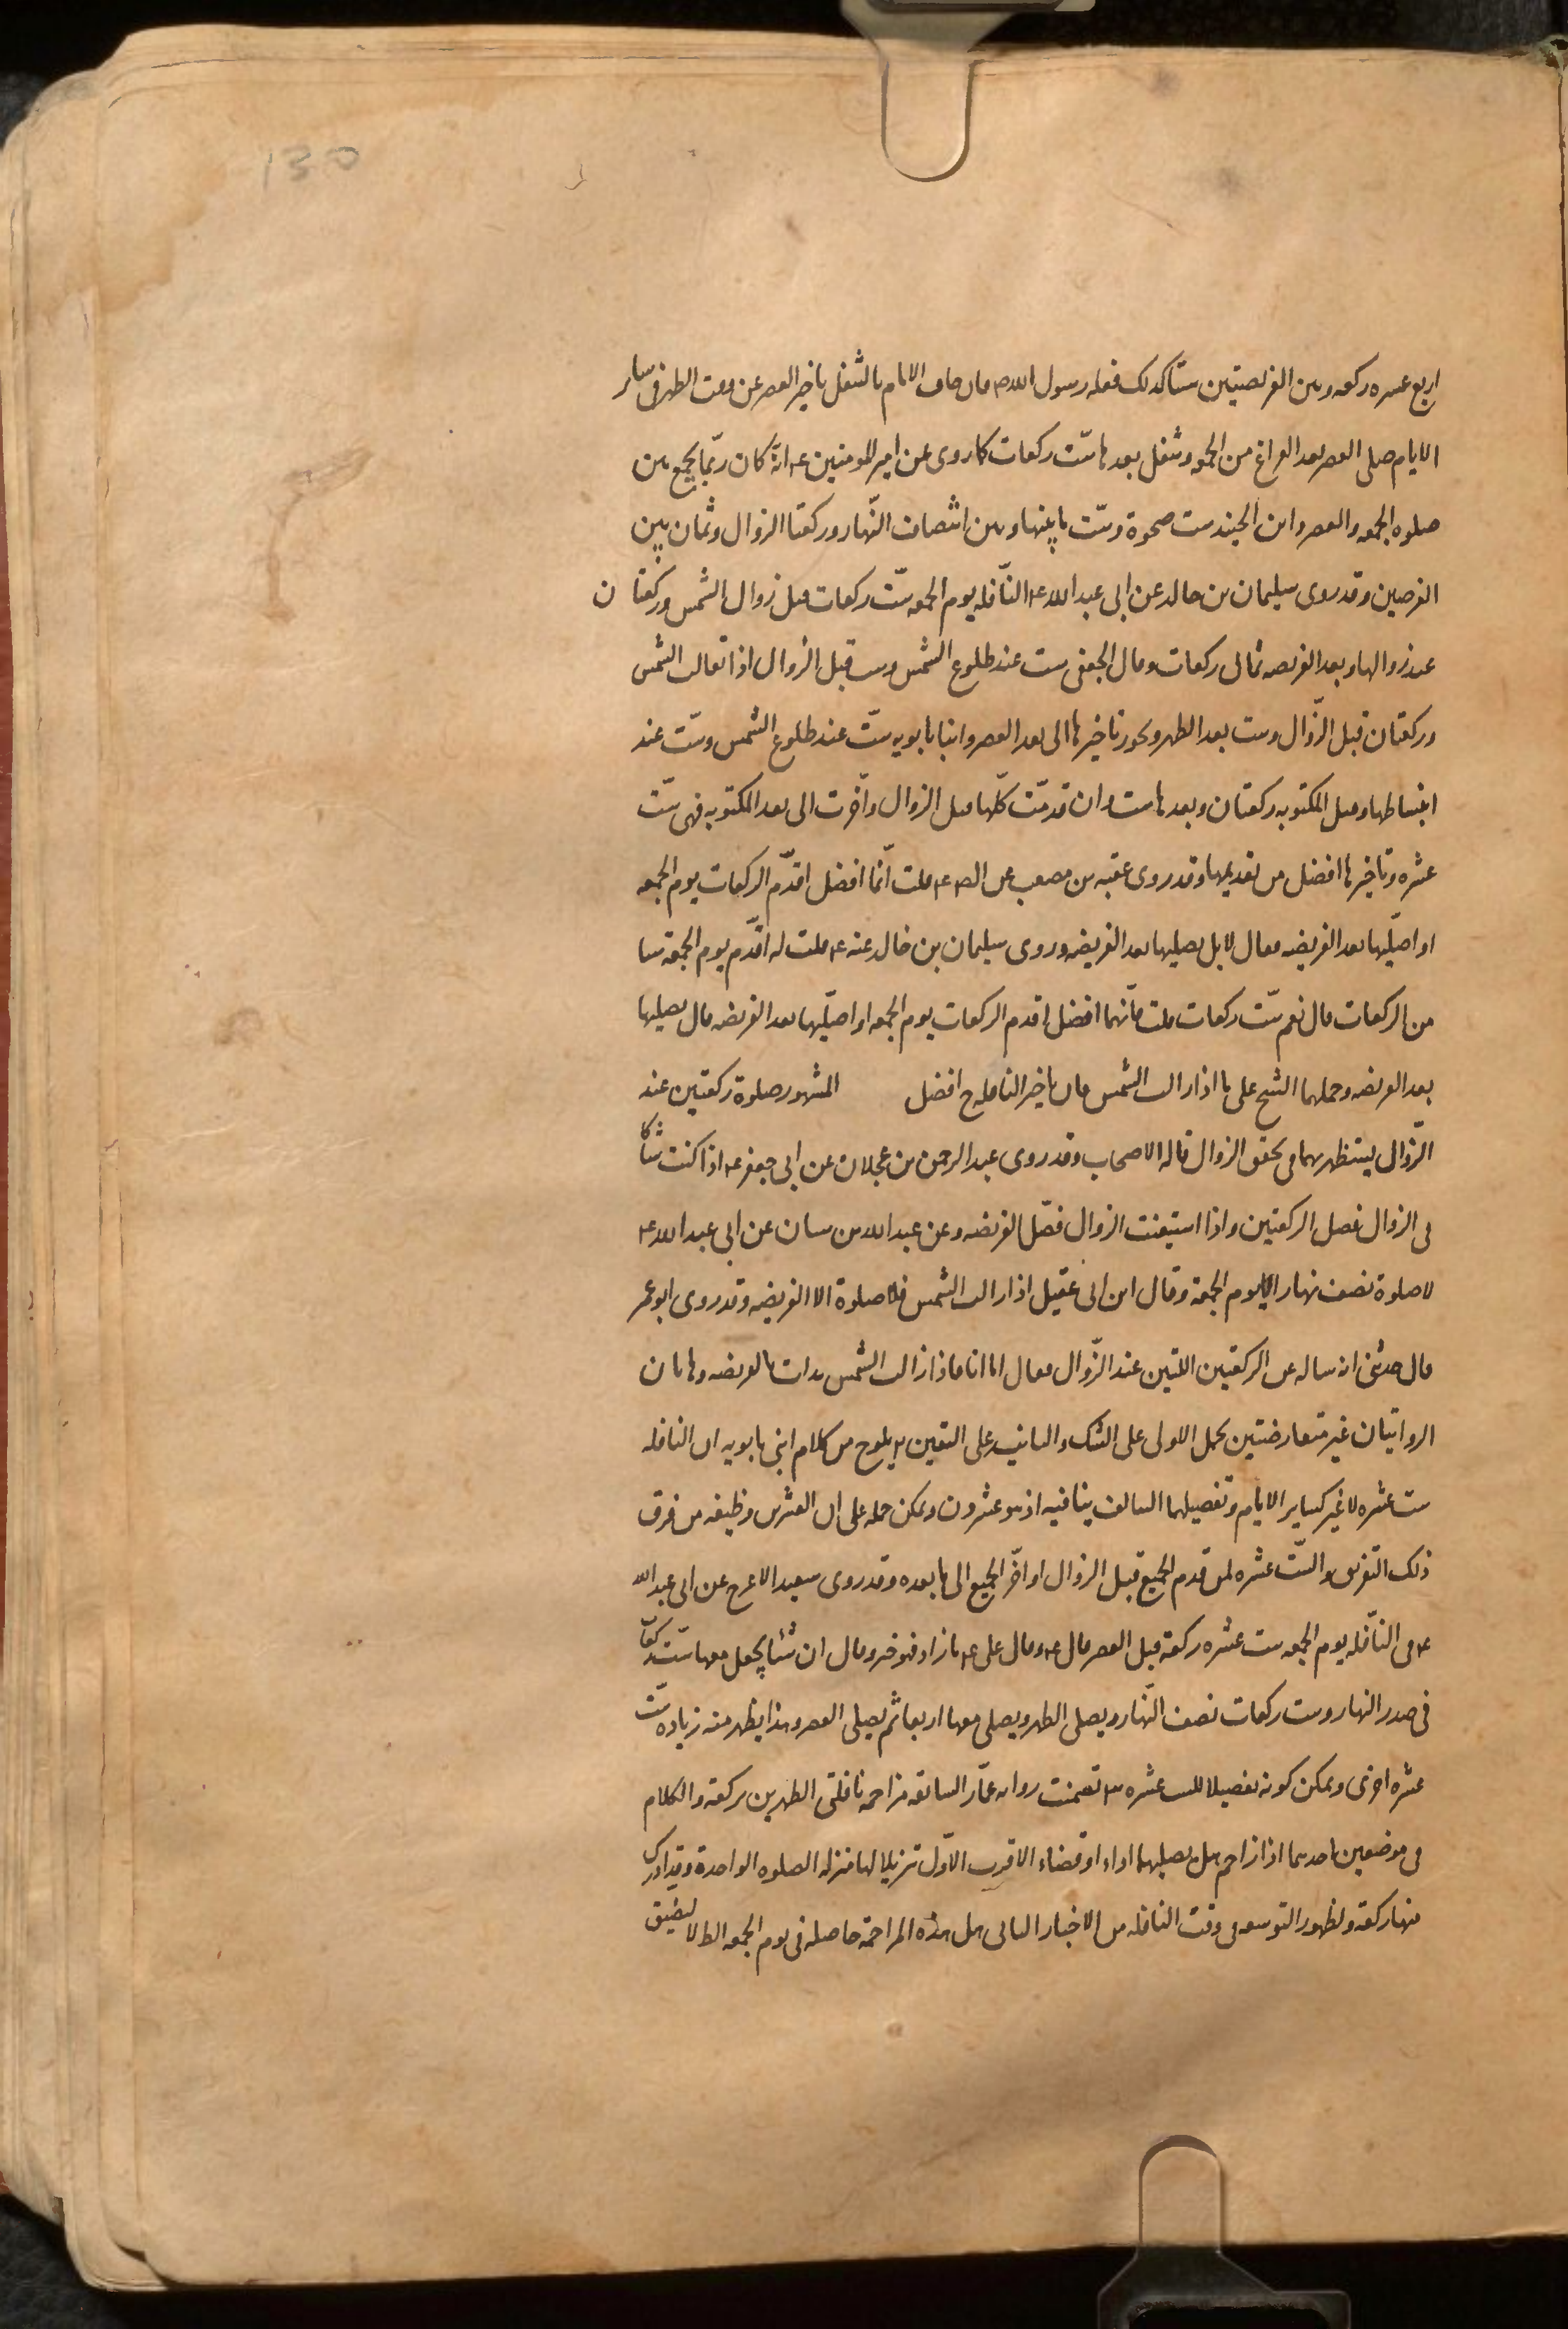 130
اربع عشره ركعه وبين الفريضتين ستا كذلك فعله رسول الله ص فان خاف الامام بالتنفل تاخير العصر عن وقت الظهر فى ساير
الايام صلى العصر بعد الفراغ من الجمعه وتنفل بعدها ستّ ركعات كما روى عن امير المومنين ع انه كان ربّما يجمع بين
صلوه الجمعه والعصر وابن الجنيد ست ضحوة وستّ ما بينها وبين انتصاف النّهار وركعتا الزوال وثمان بين
الفرضين وقد روى سليمان بن خالد عن ابى عبد الله ع النّافله يوم الجمعه ستّ ركعات قبل زوال الشمس وركعتان
عند زوالها وبعد الفريضه ثمانى ركعات وقال الجعفى ست عند طلوع الشمس وست قبل الزوال اذا تعالت الشمس
وركعتان قبل الزّوال وست بعد الظهر ويجوز تاخيرها الى بعد العصر وابنا بابويه ستّ عند طلوع الشمس وستّ عند
انبساطها وقبل المكتوبه ركعتان وبعدها ست وان قدمّت كلّها قبل الزوال واخّرت الى بعد المكتوبه فهى ستّ
عشره وتاخيرها افضل من تقديمها وقد روى عقبه بن مصعب عن الص ع قلت ايّما افضل اقدّم الركعات يوم الجمعه
او اصلّيها بعد الفريضه فقال لا بل يصليها بعد الفريضه وروى سليمان بن خالد عنه ع قلت له اقدّم يوم الجمعة شيا
من الركعات قال نعم ستّ ركعات قلت فايّهما افضل اقدم الركعات يوم الجمعه او اصلّيها بعد الفريضه قال يصليها
بعد الفريضه وحملهما الشيخ على ما اذا زالت الشمس فان تاخير النافله ح افضل المشهور صلوة ركعتين عند
الزّوال يستظهر بهما فى تحقق الزوال قاله الاصحاب وقد روى عبد الرحمن بن عجلان عن ابى جعفر ع اذا كنت شاكا
فى الزوال فصل الركعتين واذا استيقنت الزوال فصّل الفريضه وعن عبد الله بن سنان عن ابى عبد الله ع
لا صلوة نصف نهار الا يوم الجمعة وقال ابن ابى عقيل اذا زالت الشمس فلا صلوة الا الفريضه وقد روى ابو عمر
قال حدثنى انه ساله عن الركعتين اللتين عند الزّوال فقال اما انا فاذا زالت الشمس بدات بالفريضه وهاتان
الروايتان غير متعارضتين بحمل الاولى على الشك والثانيه على اليقين يلوح من كلام ابنى بابويه ان النافله
ست عشره لا غير كساير الايام وتفصيلهما السالف ينافيه اذ هو عشرون ويمكن حمله على ان العشرين وظيفه من فرق
ذلك التفريق والستّ عشره لمن قدم الجميع قبل الزوال او اخّر الجميع الى ما بعده وقد روى سعيد الاعرج عن ابى عبد الله
ع فى النّافله يوم الجمعه ست عشره ركعة قبل العصر قال ع وقال على ع ما زاد فهو خير وقال ان شاء يجعل معها ستّ ركعات
فى صدر النهار وست ركعات نصف النّهار ويصلى الظهر ويصلى معها اربعا ثم يصلى العصر وهذا يظهر منه زياده ستّ
عشره اخرى ويمكن كونه تفصيلا للست عشره تضمنت روايه عمّار السابقه مزاحمه نافلتى الظهرين بركعة والكلام
فى موضعين احدهما اذا زاحم هل يصليهما اداء او قضاء الاقرب الاوّل تنزيلا لها منزله الصلوه الواحدة وقد ادرك
منها ركعة ولظهور التوسعه فى وقت النافله من الاخبار الثانى هل هذه المزاحمة حاصله فى يوم الجمعه الظ لا لضيق